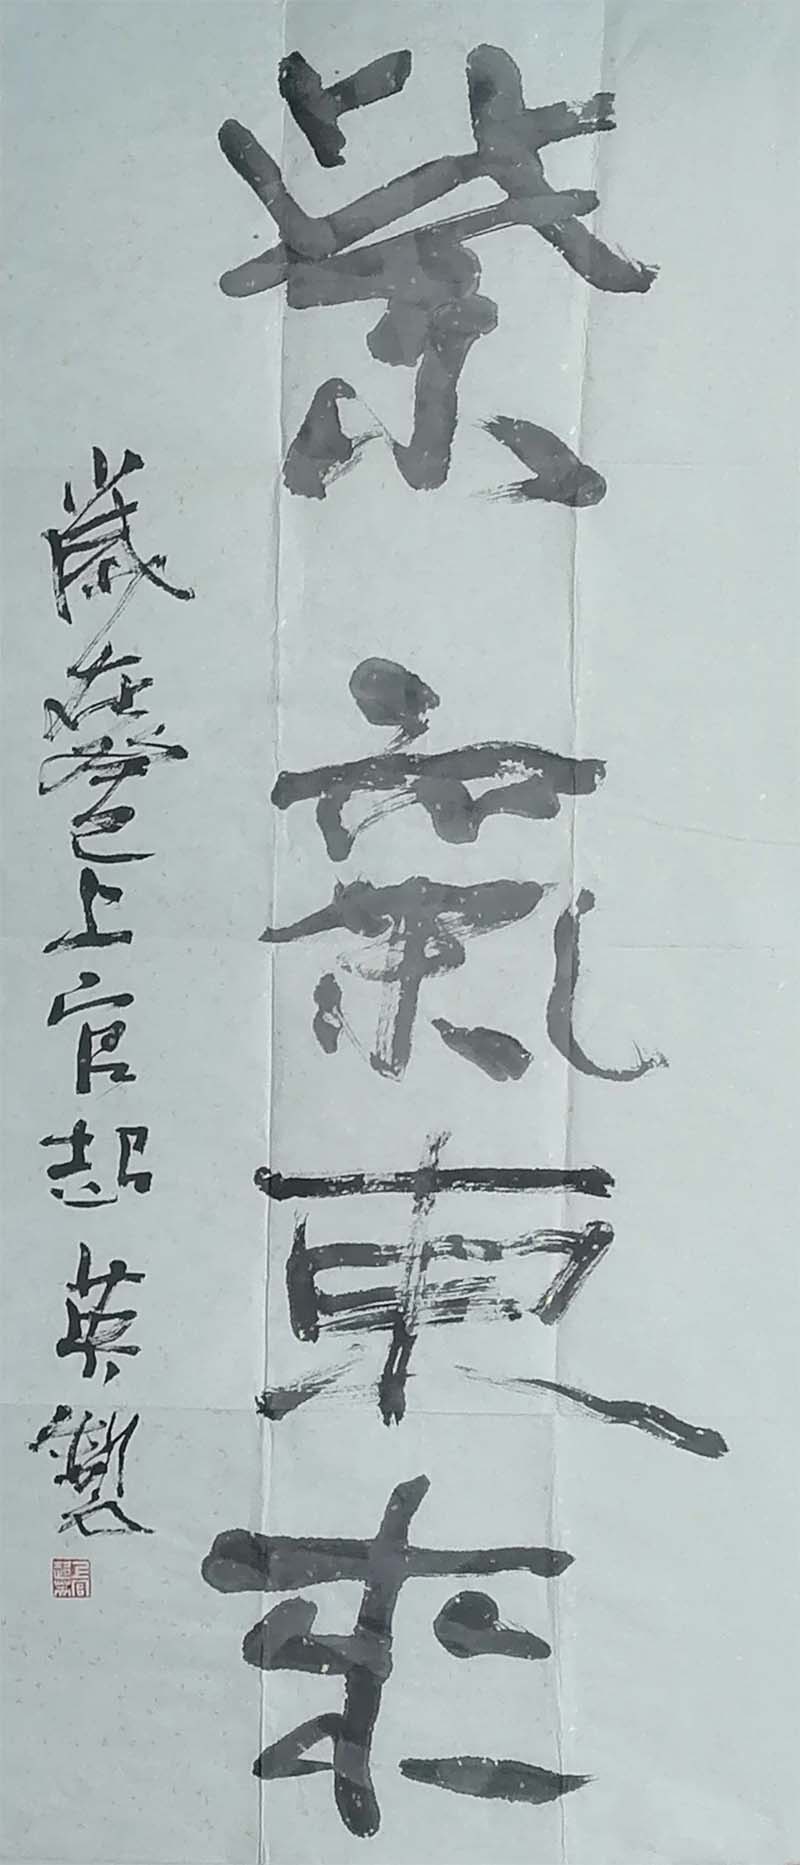 紫氣東來
歲在癸巳上官超英製